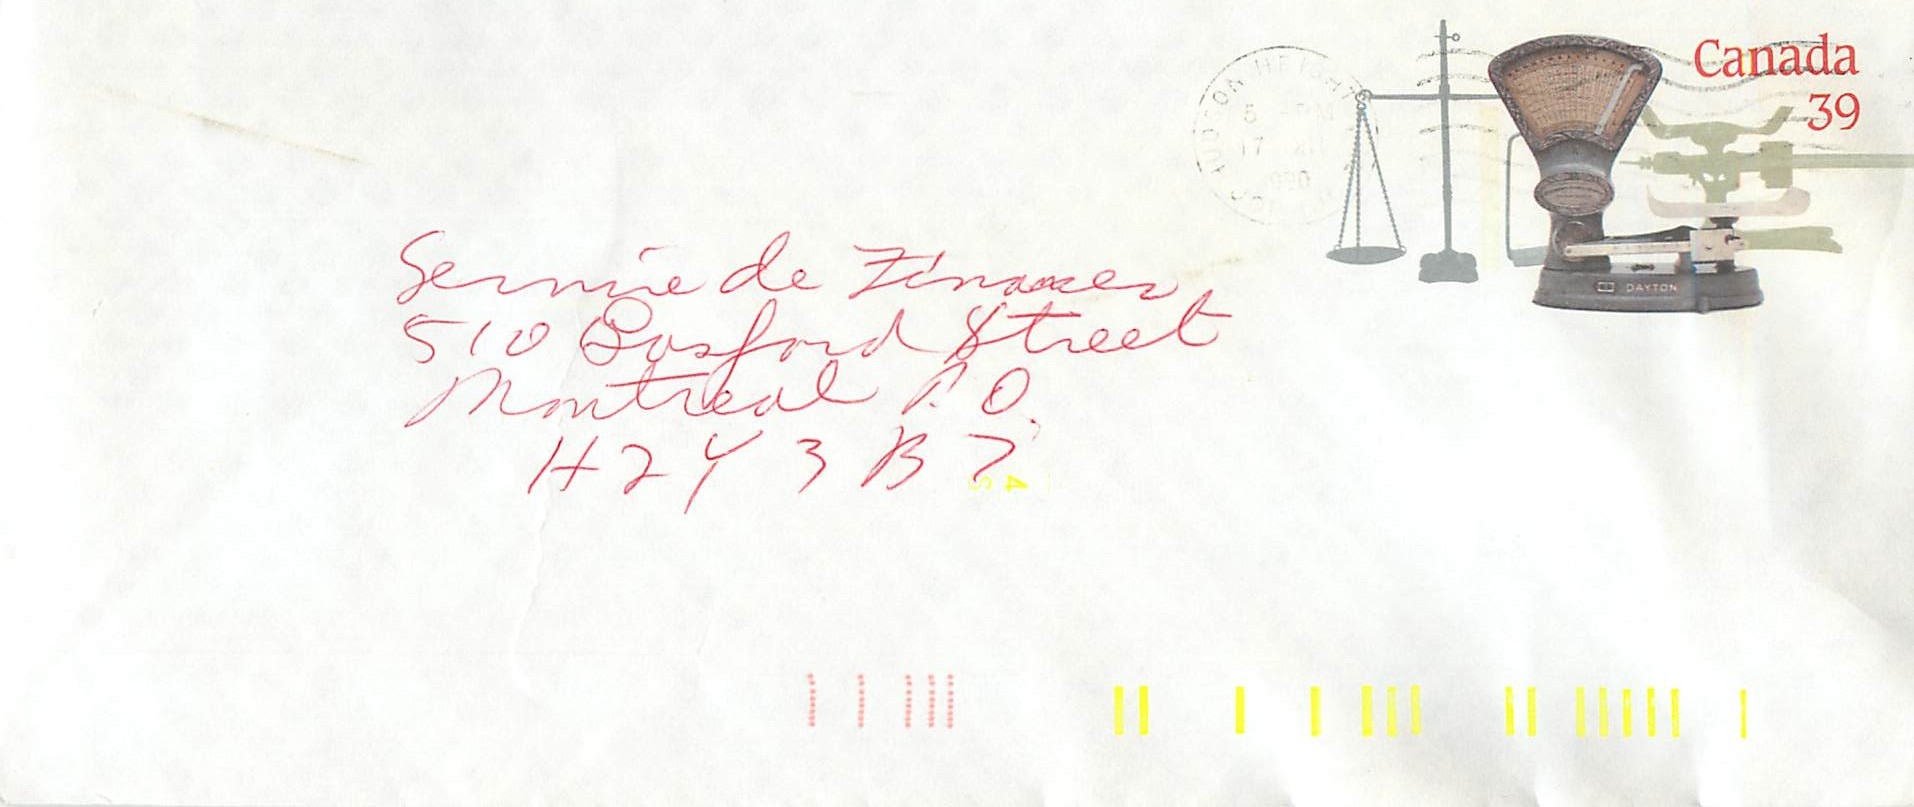 Canada
39
HUDSON HEIGHTS
5 PM
17 XII
1990
DAYTON
Service de Finances
510 Gosford Street
Montreal P.Q.
H2Y 3B7
4
S